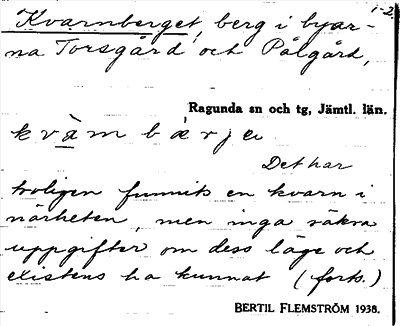 1-2.
Kvarnberget, berg i byar-
na Torsgård och Pålgård,
Ragunda sn och tg, Jämtl. län.
kvàm bǽrje
Det har
troligen funnits en kvarn i
närheten, men inga säkra
uppgifter om dess läge och
existens ha kunnat (forts.)
BERTIL FLEMSTRÖM 1938.